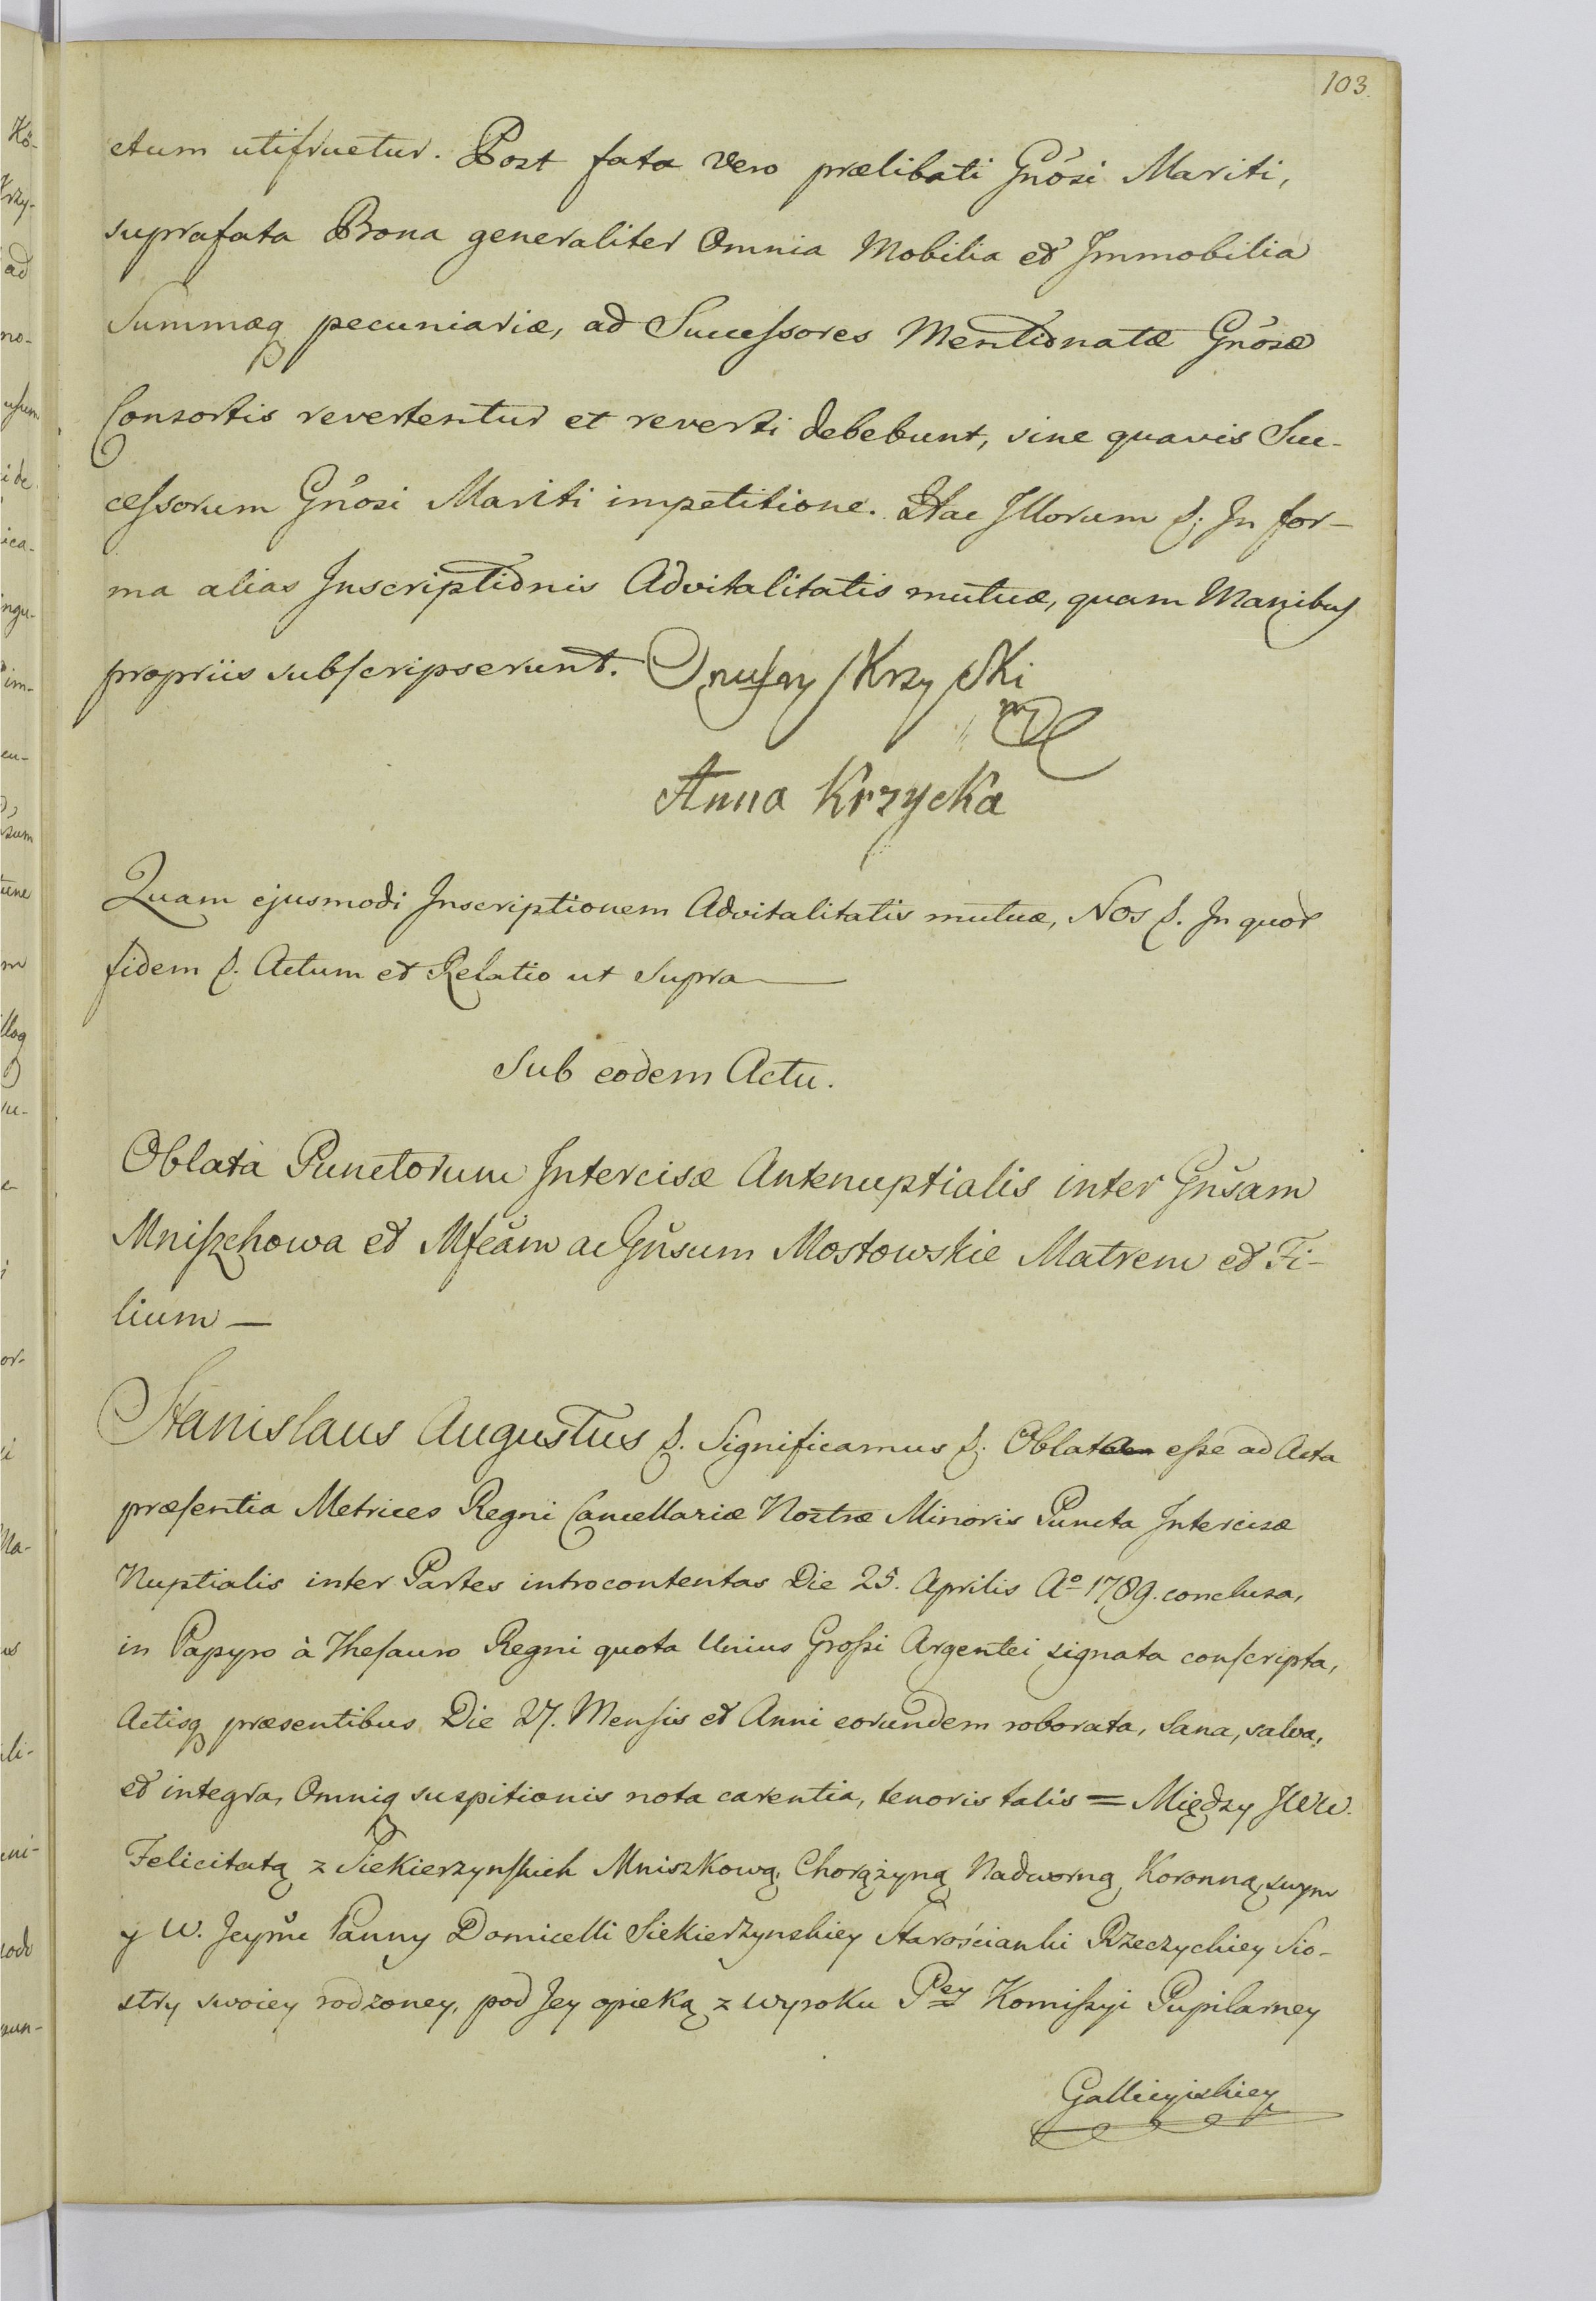 103.
ctum utifruetur. Post fata vero prælibati Gnósi Mariti,
suprafata Bona generaliter Omnia Mobilia et Immobilia
Summæq pecuniariæ, ad Sucessores Mentionatæ Gnósæ
Consortis revertentur et reverti debebunt, sine quavis Suc-
cessorum Gnósi Mariti impetitione. Hac Illorum &; In for-
ma alias Inscriptionis Advitalitatis mutuæ, quam Manibus
propriis subscripserunt. Onufry Krzycki
mp
Anna Krzycka
Quam ejusmodi Inscriptionem Advitalitatis mutuæ, Nos &. In quor
fidem &. Actum et Relatio ut Supra
Sub eodem Actu.
Oblata Punctorum Intercisæ Antenuptialis inter Gnsam
Mniszchowa et Mfcam ac Gnsum Mostowskie Matrem et Fi-
lium —
Stanislaus Augustus &. Significamus &. Oblata esse ad Acta
præsentia Metrices Regni Cancellariæ Nostræ Minoris Puncta Intercisæ
Nuptialis inter Partes introcontentas Die 25. Aprilis Ao 1789. conclusa,
in Papyro à Thesauro Regni quota Unius Grossi Argentei signata conscripta,
Actisq præsentibus Die 27. Mensis et Anni eorundem roborata, sana, salva,
et integra, Omniq suspitionis nota carentia, tenoris talis = Między JWW.
Felicitatą z Siekierzynskich Mniszkową, Chorążyną Nadworną Koronną, swym
y W. Jeymc Panny Domicelli Siekierzynskiey Starościanki Rzeczyckiey Sio-
stry swoiey rodzoney, pod Jey opieką z wyroku Pey Komissyi Pupilarney
Gallicyiskiey